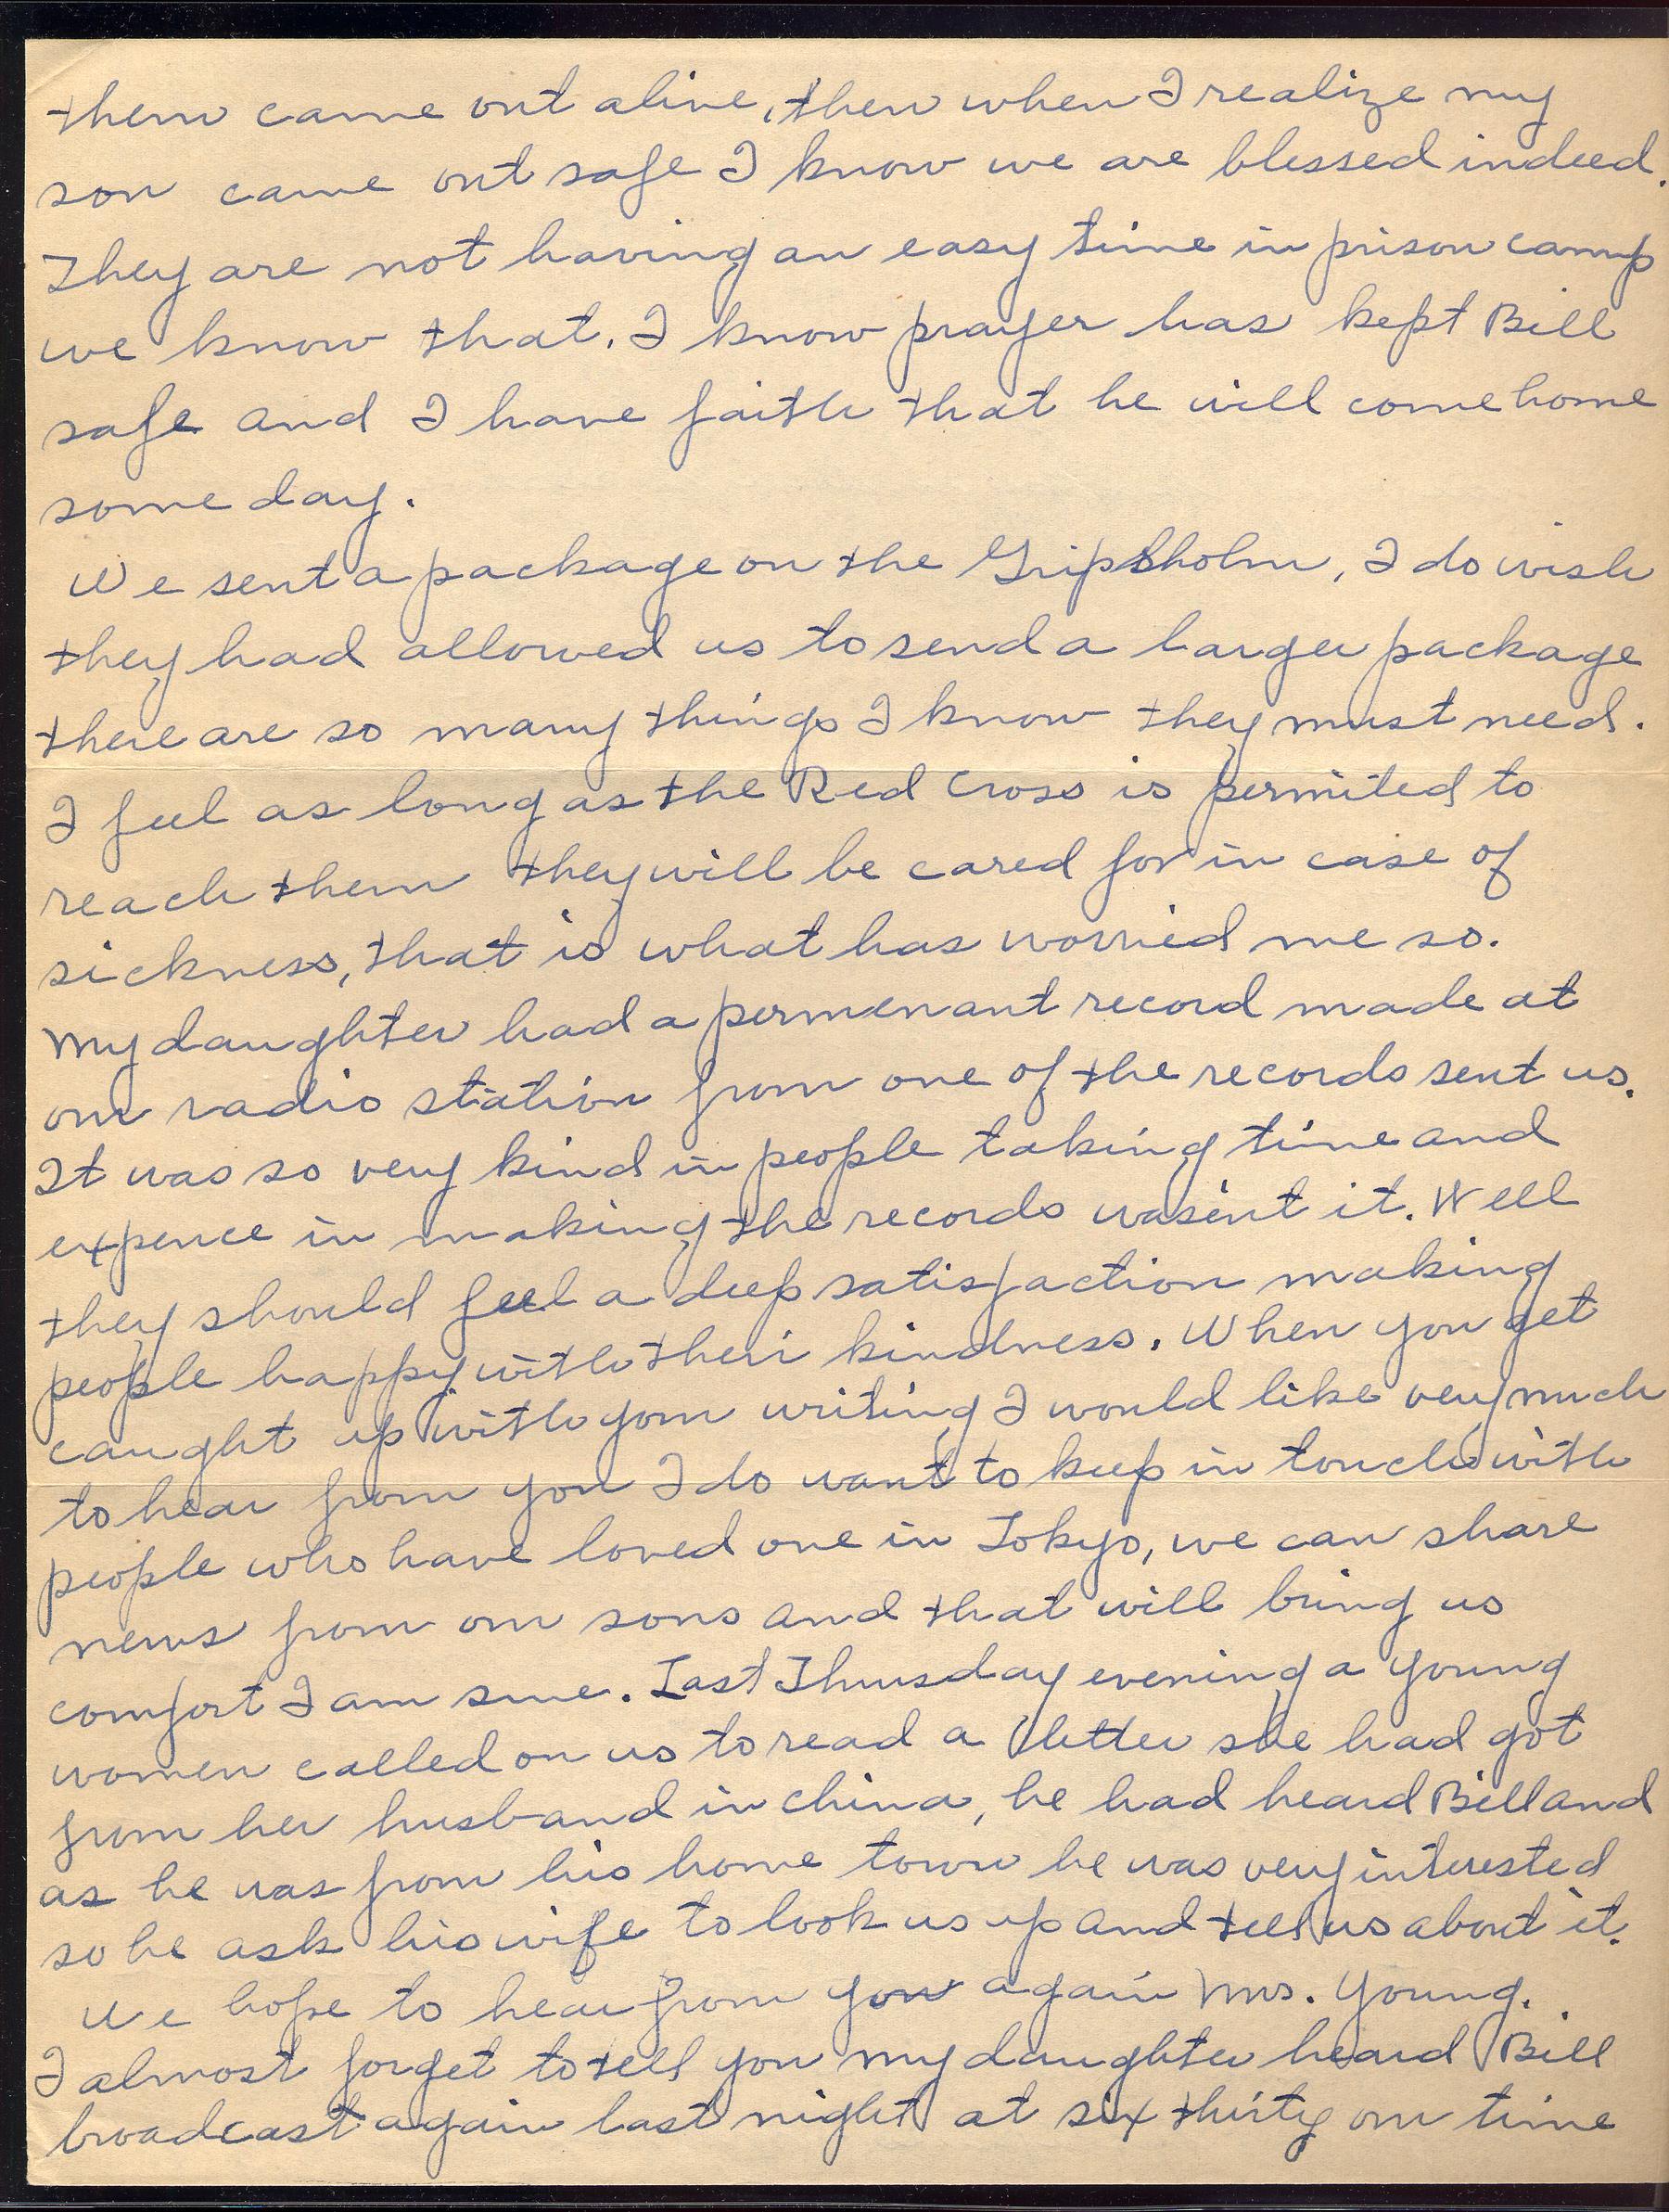 them came out alive, then when I realize my
son came out safe I know we are blessed indeed.
They are not having an easy time in prison camp
we know that. I know prayer has kept Bill
safe and I have faith that he will come home
some day.
We sent a package on the Gripsholm, I do wish
they had allowed us to send a larger package
there are so many things I know they must need.
I feel as long as the Red Cross is permited to
reach them they will be cared for in case of
sickness, that is what has worried me so.
My daughter had a permenant record made at
our radio station from one of the records sent us.
It was so very kind in people taking time and
expence in making the records wasent it. Well
they should feel a deep satisfaction making
people happy with their kindness. When you get
caught up with your writing I would like very much
to hear from you I do want to keep in touch with
people who have loved one in Tokyo, we can share
news from our sons and that will bring us
comfort I am sure. Last Thursday evening a young
women called on us to read a letter she had got
from her husband in China, he had heard Bill and
as he was from his home town he was very interested
so he ask his wife to look us up and tell us about it.
We hope to hear from you again Mrs. Young.
I almost forget to tell you my daughter heard Bill
broadcast again last night at six thirty our time